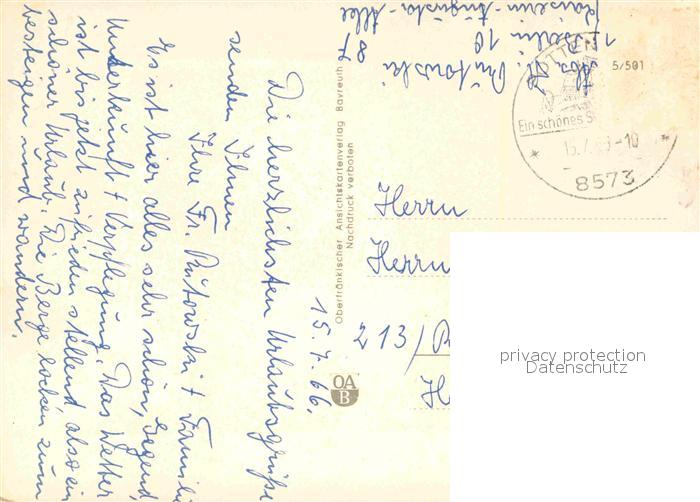 15.7.66.
Die herzlichsten Urlaubsgrüße
senden Ihnen
Ihre Fr. Rutowski + Famili
Es ist hier alles sehr schön, Gegend,
Unterkunft + Verpflegung. Das Wetter
ist bis jetzt zufrieden stellend, also ein
schöner Urlaub. Die Berge locken zum
besteigen und wandern.
Oberfränkischer Ansichtskartenverlag Bayreuth
Nachdruck verboten
OA
B
Rutowski
1 Berlin 10
Kaiserin-Augusta-Allee
87
5/501
Ein schönes S
15.7.66-10
8573
Herrn
Herrn
213/
privacy protection
Datenschutz